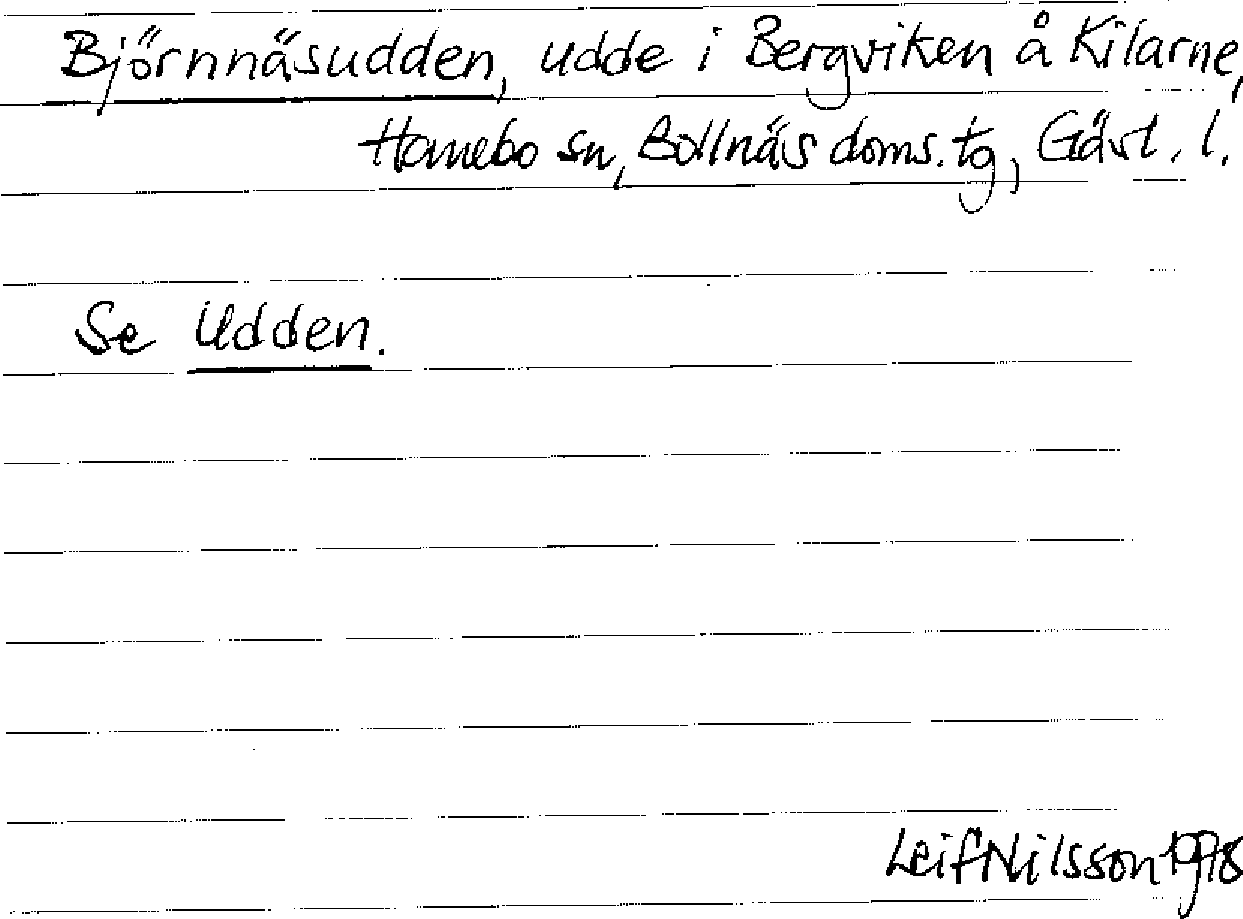 Björnnäsudden, udde i Bergviken å Kilarne,
Hanebo sn, Bollnäs doms. tg, Gävl. l.
Se Udden.
Leif Nilsson 1978